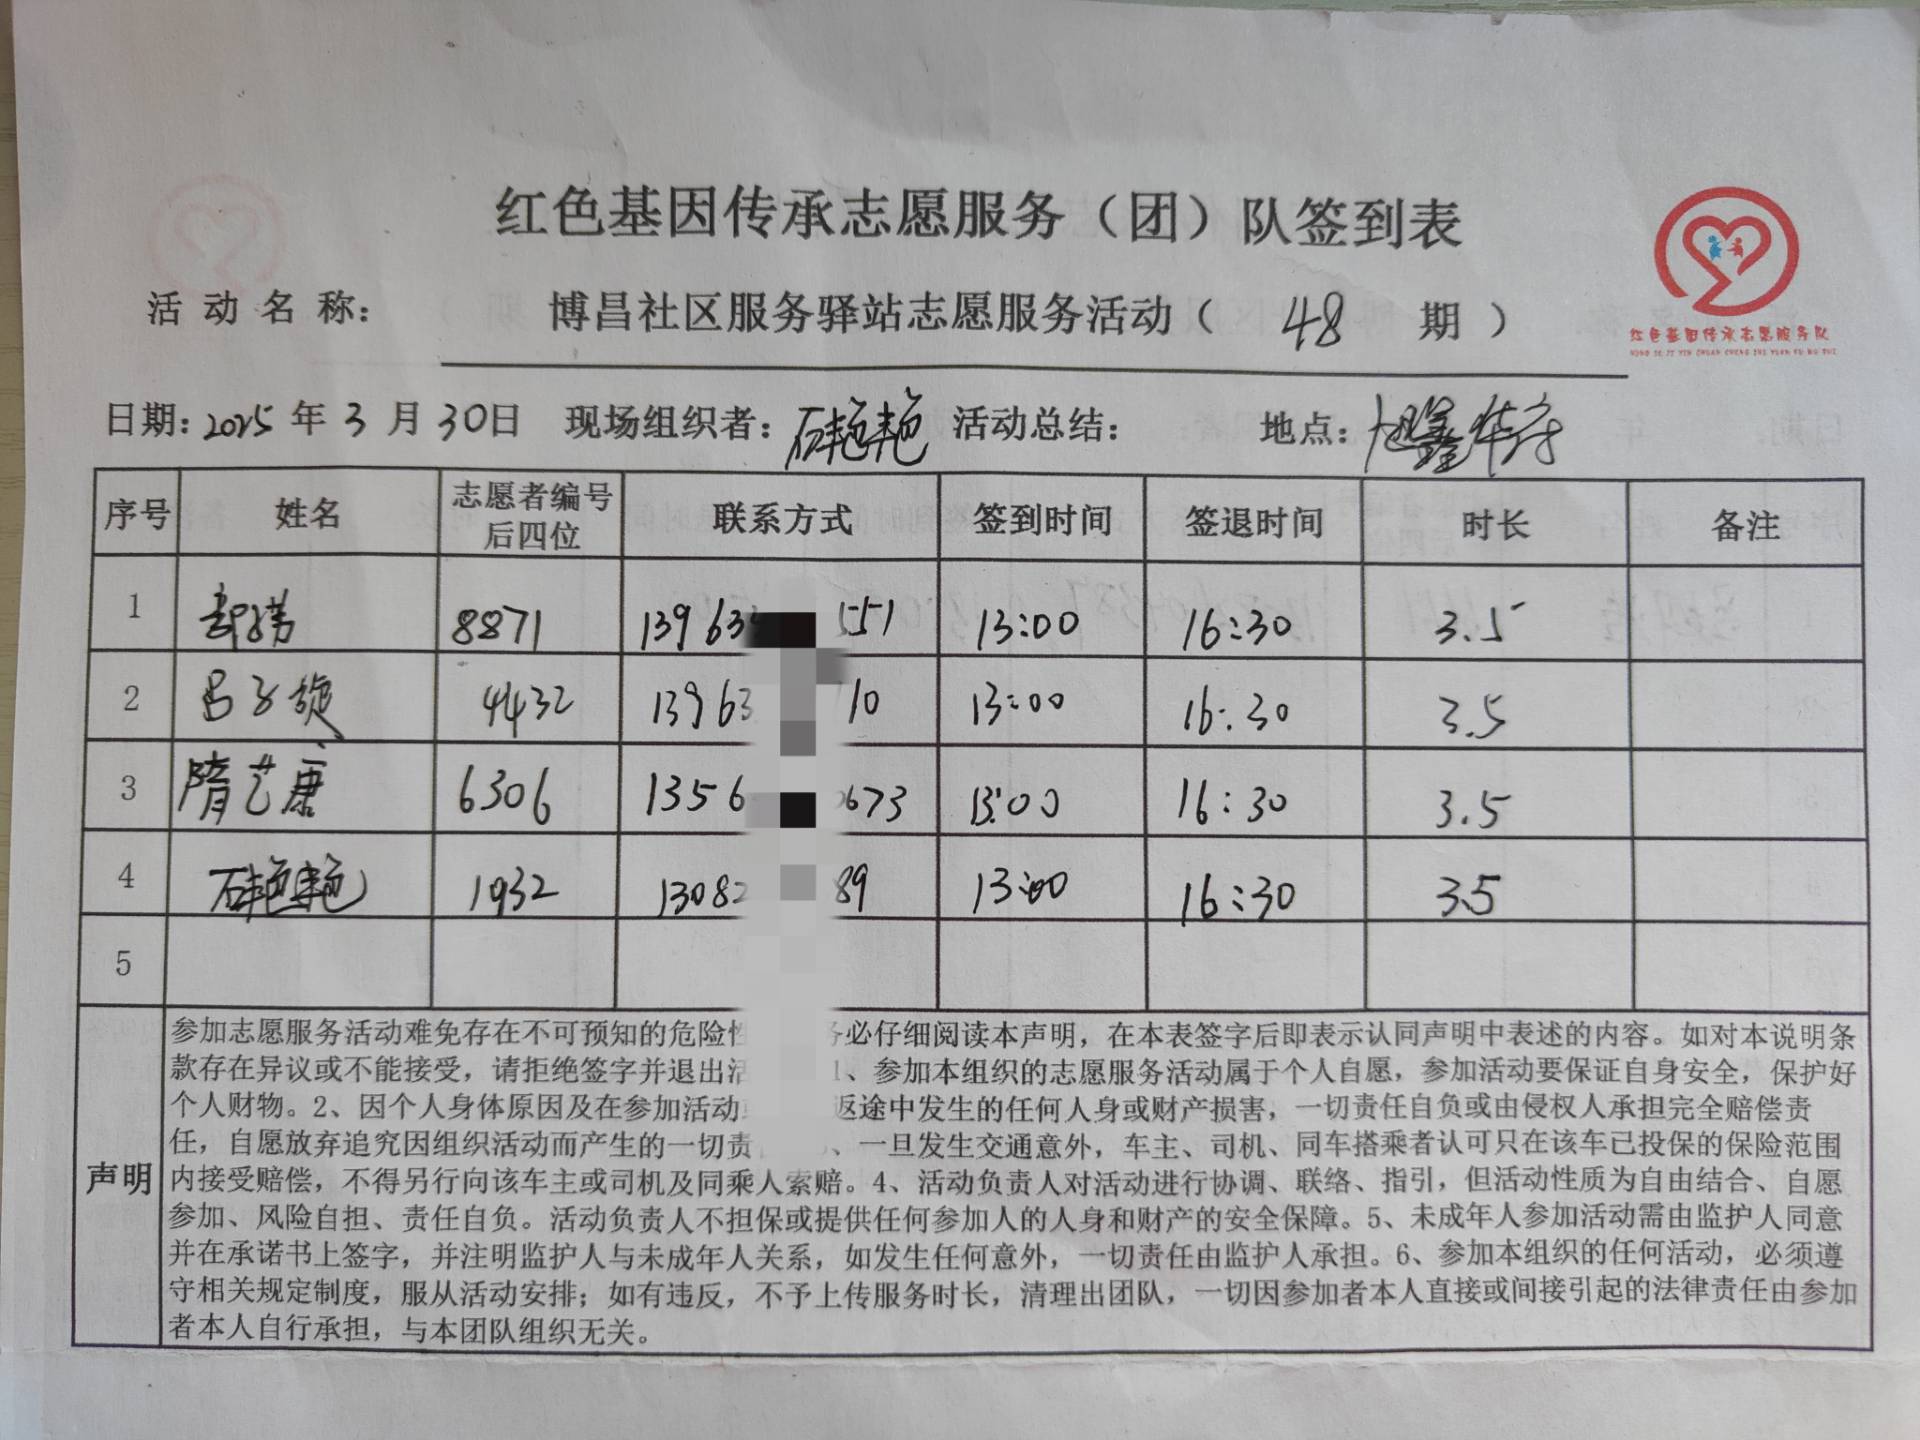 红色基因传承志愿服务（团）队签到表
活动名称： 博昌社区服务驿站志愿服务活动（ 48 期 ）
红色基因传承志愿服务队
HONG SE JI YIN CHUAN CHENG ZHI YUAN FU WU DUI
日期：2025年3月30日 现场组织者：石艳艳 活动总结： 地点：旭鑫华府
序号 姓名 志愿者编号后四位 联系方式 签到时间 签退时间 时长 备注
1 8871 13963 551 13:00 16:30 3.5
2 吕子旋 4432 13963 10 13:00 16:30 3.5
3 隋艺康 6306 1356 0673 13:00 16:30 3.5
4 石艳艳 1932 13082 89 13:00 16:30 3.5
5
声明
参加志愿服务活动难免存在不可预知的危险性 务必仔细阅读本声明，在本表签字后即表示认同声明中表述的内容。如对本说明条
款存在异议或不能接受，请拒绝签字并退出活 1、参加本组织的志愿服务活动属于个人自愿，参加活动要保证自身安全，保护好
个人财物。2、因个人身体原因及在参加活动 返途中发生的任何人身或财产损害，一切责任自负或由侵权人承担完全赔偿责
任，自愿放弃追究因组织活动而产生的一切责 、一旦发生交通意外，车主、司机、同车搭乘者认可只在该车已投保的保险范围
内接受赔偿，不得另行向该车主或司机及同乘人索赔。4、活动负责人对活动进行协调、联络、指引，但活动性质为自由结合、自愿
参加、风险自担、责任自负。活动负责人不担保或提供任何参加人的人身和财产的安全保障。5、未成年人参加活动需由监护人同意
并在承诺书上签字，并注明监护人与未成年人关系，如发生任何意外，一切责任由监护人承担。6、参加本组织的任何活动，必须遵
守相关规定制度，服从活动安排；如有违反，不予上传服务时长，清理出团队，一切因参加者本人直接或间接引起的法律责任由参加
者本人自行承担，与本团队组织无关。